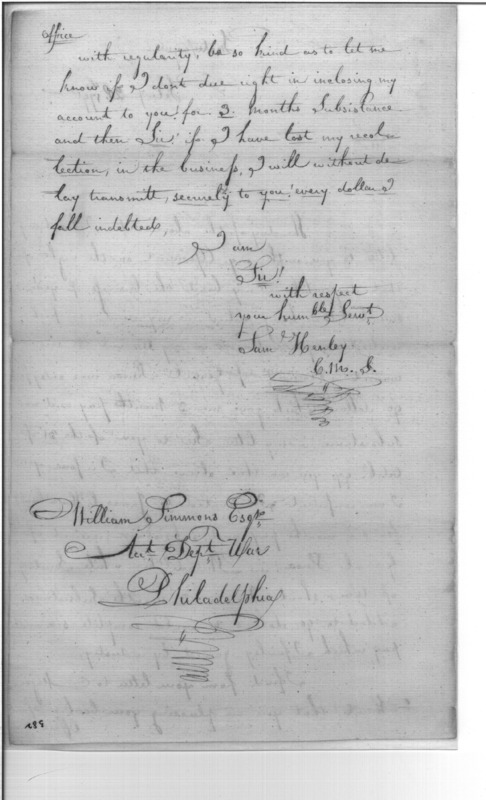 office
with regularity, be so kind as to let me
know if I dont due right in inclosing my
account to you! for 3 months Subsistance
and then Sir! if I have lost my recol-
lection, in the business, I will without de-
lay transmitt, securely to you! every dollar I
fall indebted,
I am
Sir!
with respect
your humble Servt
Saml Henley
C.M.S.
William Simmons Esqr
Acct Dept War
Philadelphia